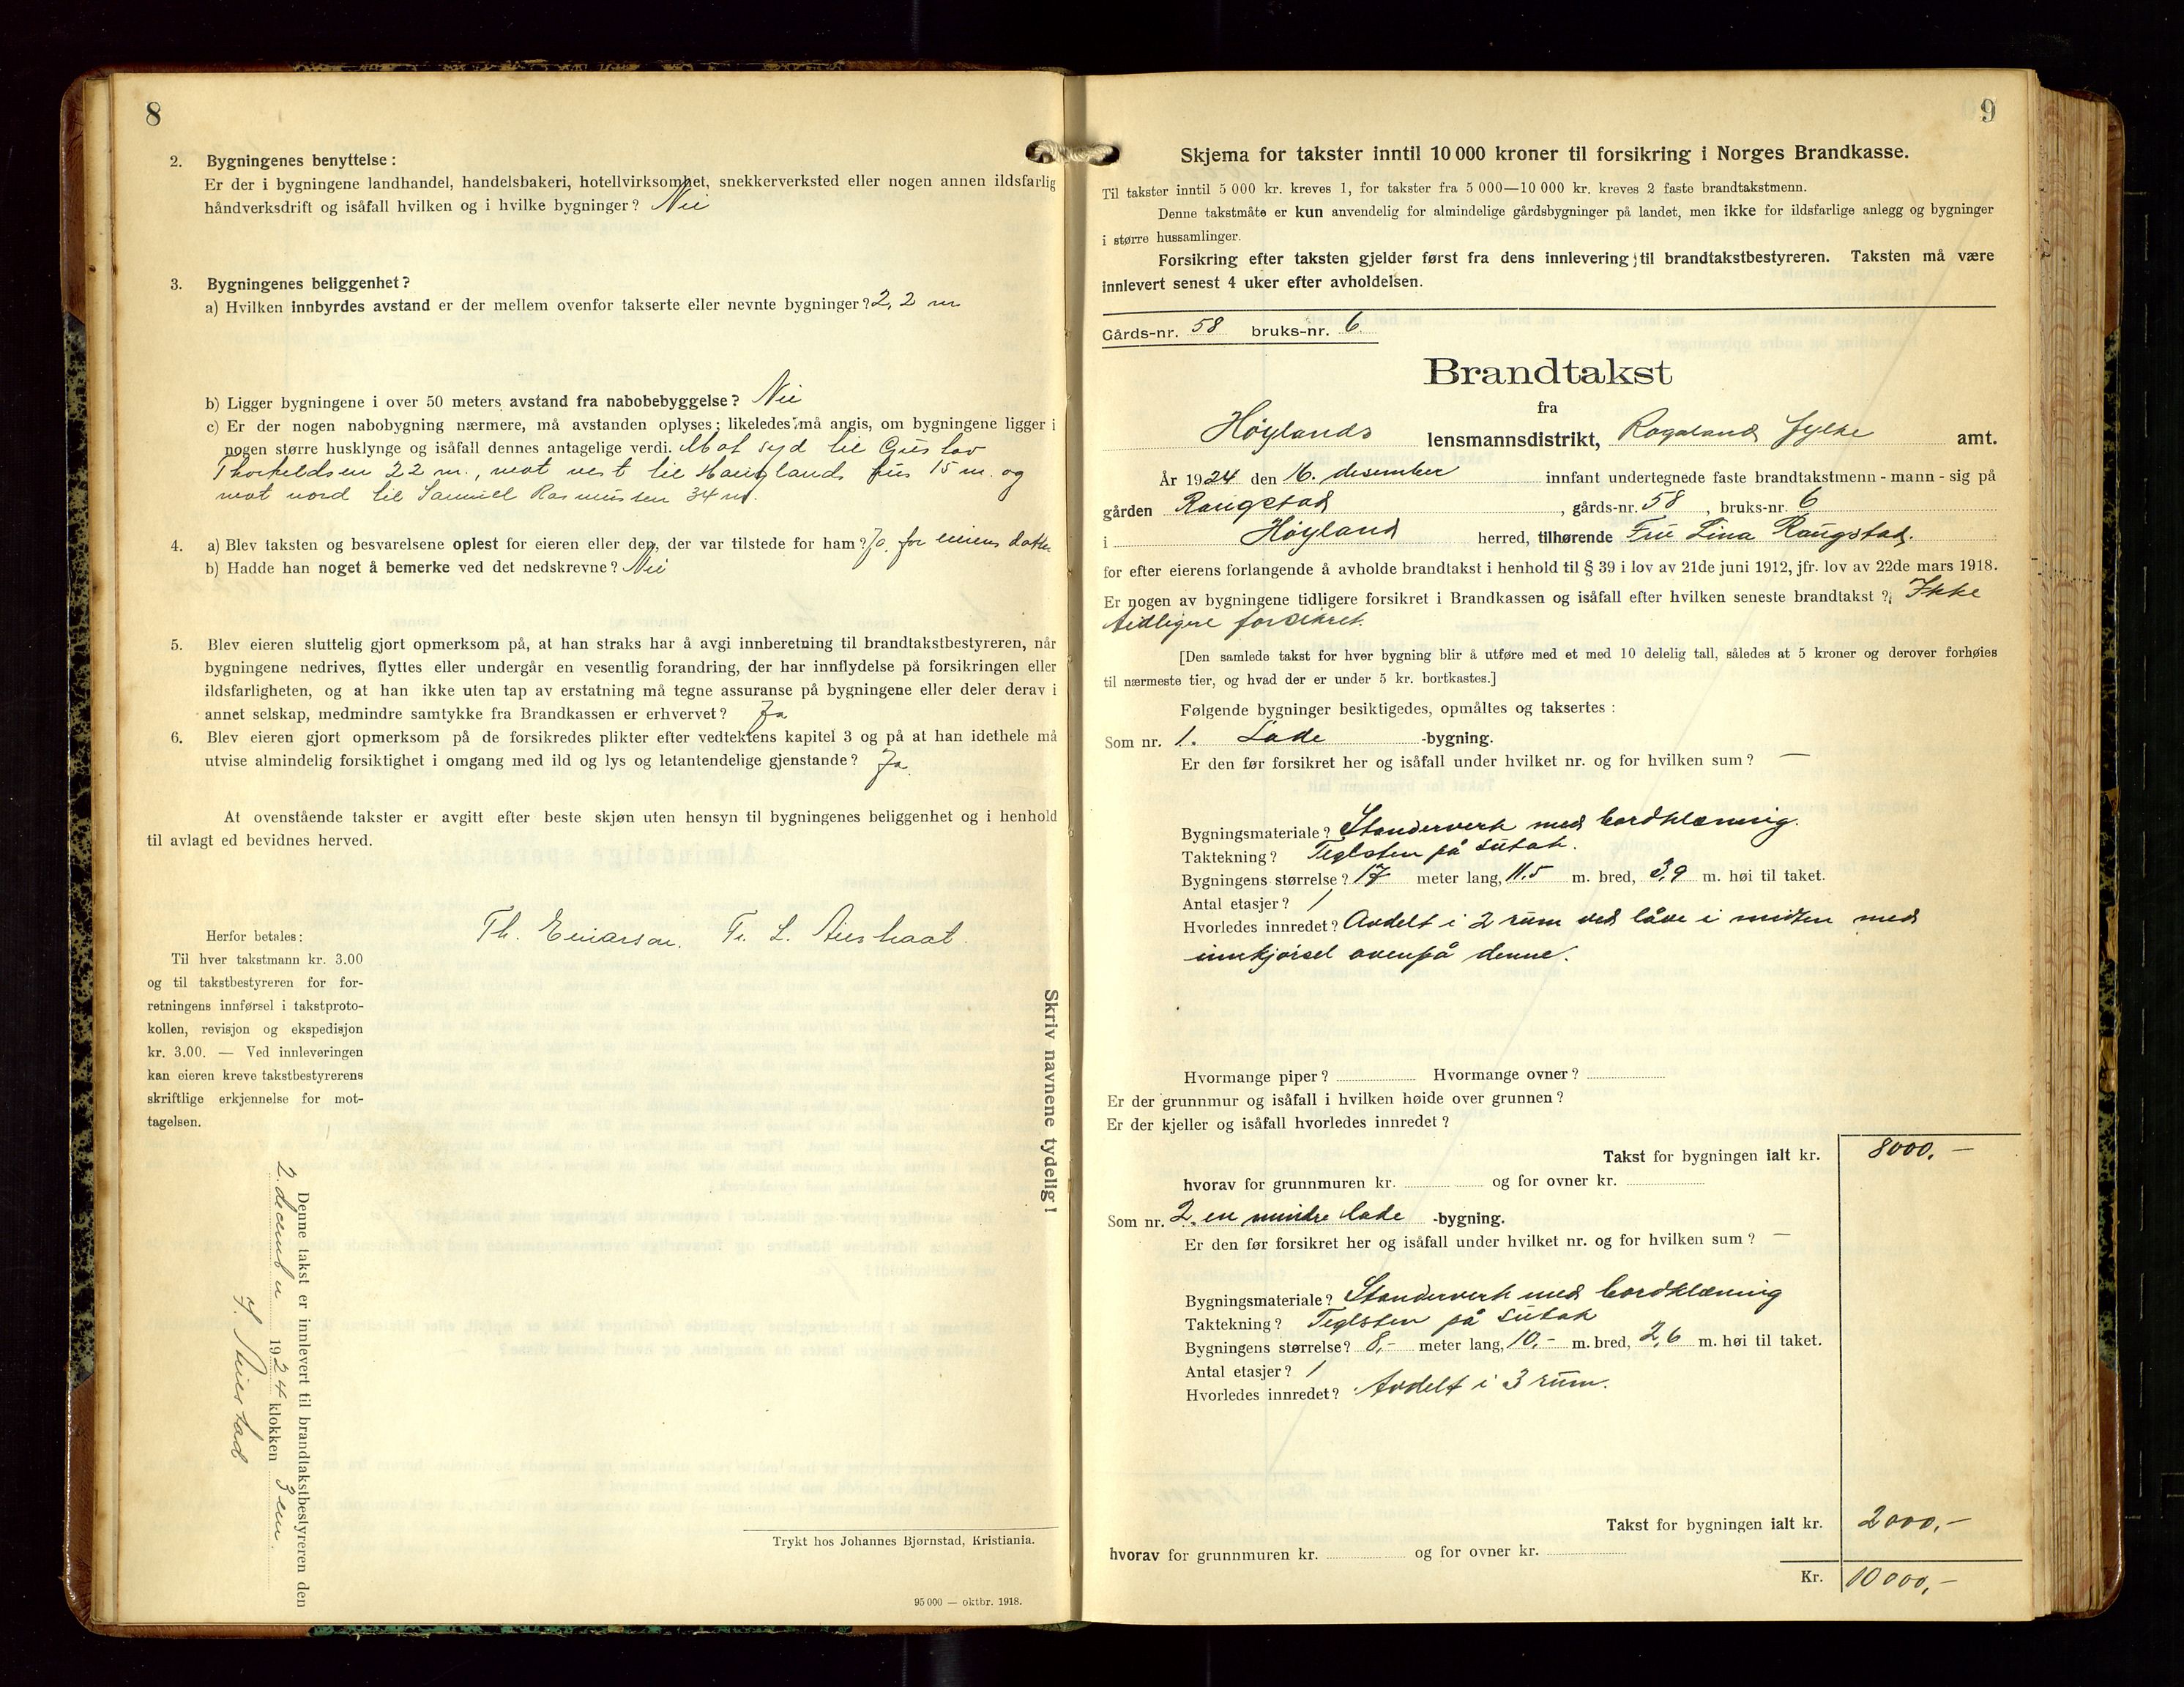 8
2. Bygningenes benyttelse:
Er der i bygningene landhandel, handelsbakeri, hotellvirksomhet, snekkerverksted eller nogen annen ildsfarlig
håndverksdrift og isåfall hvilken og i hvilke bygninger? Nei
3. Bygningenes beliggenhet?
a) Hvilken innbyrdes avstand er der mellem ovenfor takserte eller nevnte bygninger? 2,2 m
b) Ligger bygningene i over 50 meters avstand fra nabobebyggelse? Nei
c) Er der nogen nabobygning nærmere, må avstanden oplyses; likeledes må angis, om bygningene ligger i
nogen større husklynge og isåfall dennes antagelige verdi. Mot syd til Gustav
Thorkeldsen 22 m., mot vest til Haugland hus 15 m. og
mot nord til Samuel Rasmussen 34 m.
4. a) Blev taksten og besvarelsene oplest for eieren eller den, der var tilstede for ham? Jo, for eierens datter
b) Hadde han noget å bemerke ved det nedskrevne? Nei
5. Blev eieren sluttelig gjort opmerksom på, at han straks har å avgi innberetning til brandtakstbestyreren, når
bygningene nedrives, flyttes eller undergår en vesentlig forandring, der har innflydelse på forsikringen eller
ildsfarligheten, og at han ikke uten tap av erstatning må tegne assuranse på bygningene eller deler derav i
annet selskap, medmindre samtykke fra Brandkassen er erhvervet? Ja
6. Blev eieren gjort opmerksom på de forsikredes plikter efter vedtektens kapitel 3 og på at han idethele må
utvise almindelig forsiktighet i omgang med ild og lys og letantendelige gjenstande? Ja.
At ovenstående takster er avgitt efter beste skjøn uten hensyn til bygningenes beliggenhet og i henhold
til avlagt ed bevidnes herved.
Th. Einarsen. Tr. L. Austraat.
Herfor betales:
Til hver takstmann kr. 3.00
og til takstbestyreren for for-
retningens innførsel i takstproto-
kollen, revisjon og ekspedisjon
kr. 3.00. — Ved innleveringen
kan eieren kreve takstbestyrerens
skriftlige erkjennelse for mot-
tagelsen.
Skriv navnene tydelig!
Denne takst er innlevert til brandtakstbestyreren den
2. december 1924 klokken 3 em.
Trykt hos Johannes Bjørnstad, Kristiania.
95 000 — oktbr. 1918.
9
Skjema for takster inntil 10 000 kroner til forsikring i Norges Brandkasse.
Til takster inntil 5 000 kr. kreves 1, for takster fra 5 000—10 000 kr. kreves 2 faste brandtakstmenn.
Denne takstmåte er kun anvendelig for almindelige gårdsbygninger på landet, men ikke for ildsfarlige anlegg og bygninger
i større hussamlinger.
Forsikring efter taksten gjelder først fra dens innlevering til brandtakstbestyreren. Taksten må være
innlevert senest 4 uker efter avholdelsen.
Gårds-nr. 58 bruks-nr. 6.
Brandtakst
fra
Høylands lensmannsdistrikt, Rogaland fylke amt.
År 1924 den 16. desember innfant undertegnede faste brandtakstmenn - mann - sig på
gården Raugstad, gårds-nr. 58, bruks-nr. 6
i Høyland herred, tilhørende Fru Lina Raugstad.
for efter eierens forlangende å avholde brandtakst i henhold til § 39 i lov av 21de juni 1912, jfr. lov av 22de mars 1918.
Er nogen av bygningene tidligere forsikret i Brandkassen og isåfall efter hvilken seneste brandtakst? Ikke
tidligere forsikret.
[Den samlede takst for hver bygning blir å utføre med et med 10 delelig tall, således at 5 kroner og derover forhøies
til nærmeste tier, og hvad der er under 5 kr. bortkastes.]
Følgende bygninger besiktigedes, opmåltes og taksertes:
Som nr. 1. Lade -bygning.
Er den før forsikret her og isåfall under hvilket nr. og for hvilken sum? —
Bygningsmateriale? Standerverk med bordklæning.
Taktekning? Teglsten på sutak.
Bygningens størrelse? 17 meter lang, 11.5 m. bred, 3,9 m. høi til taket.
Antal etasjer? 1
Hvorledes innredet? Avdelt i 2 rum ved låve i midten med
innkjørsel ovenpå denne.
Hvormange piper? Hvormange ovner?
Er der grunnmur og isåfall i hvilken høide over grunnen?
Er der kjeller og isåfall hvorledes innredet?
Takst for bygningen ialt kr. 8000,—
hvorav for grunnmuren kr. og for ovner kr.
Som nr. 2. en mindre lade -bygning.
Er den før forsikret her og isåfall under hvilket nr. og for hvilken sum? —
Bygningsmateriale? Standerverk med bordklæning
Taktekning? Teglsten på sutak
Bygningens størrelse? 8,- meter lang, 10,- m. bred, 2,6 m. høi til taket.
Antal etasjer? 1
Hvorledes innredet? Avdelt i 3 rum.
Takst for bygningen ialt kr. 2000,—
hvorav for grunnmuren kr. og for ovner kr.
Kr. 10000,—